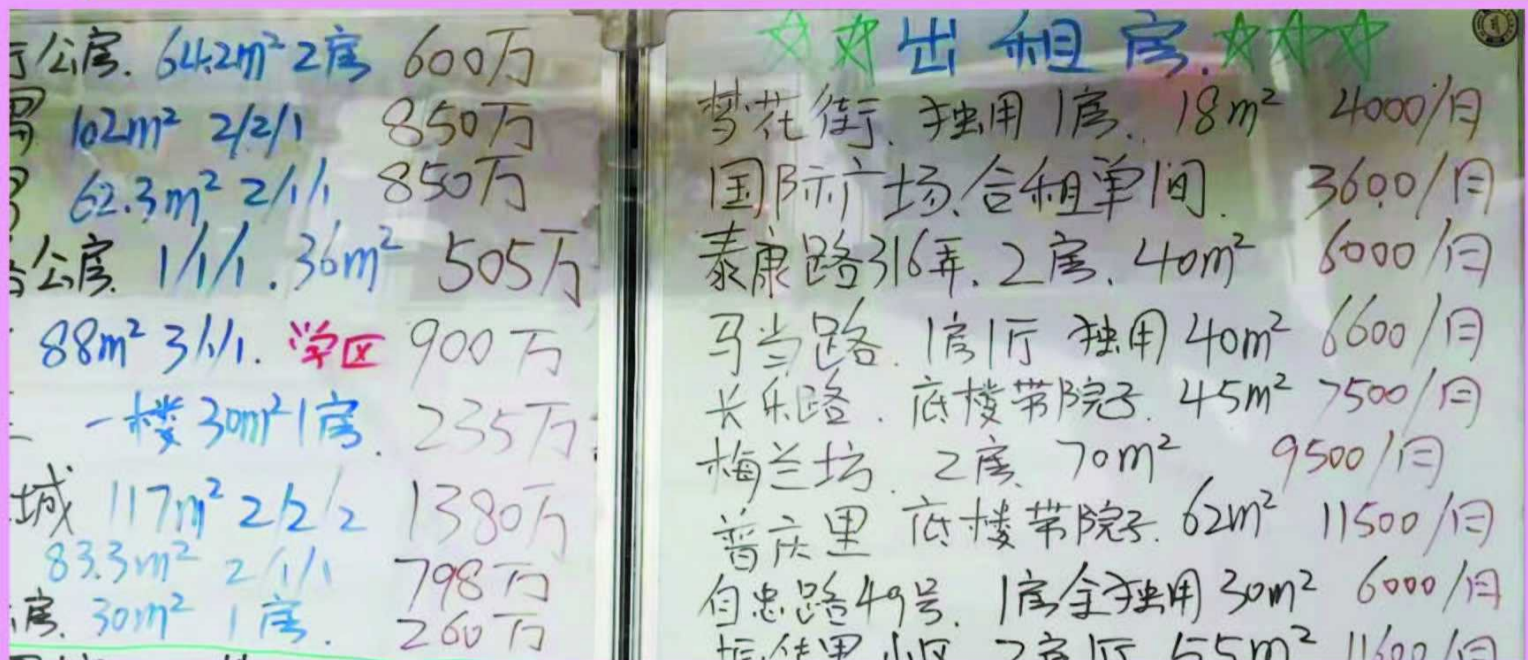 公房. 64.2m² 2房 600万
102m² 2/2/1 850万
62.3m² 2/1/1 850万
公房. 1/1/1. 36m² 505万
88m² 3/1/1. 学区 900万
一楼 30m² 1房. 235万
城 117m² 2/2/2 1380万
83.3m² 2/1/1 798万
房. 30m² 1房. 260万
出租房.
梦花街. 独用1房. 18m² 4000/月
国际广场. 合租单间. 3600/月
泰康路316弄. 2房. 40m² 6000/月
马当路. 1房1厅 独用 40m² 6600/月
长乐路. 底楼带院子. 45m² 7500/月
梅兰坊. 2房. 70m² 9500/月
普庆里 底楼带院子. 62m² 11500/月
自忠路49号. 1房全独用 30m² 6000/月
小区 2房1厅 55m² 11600/月